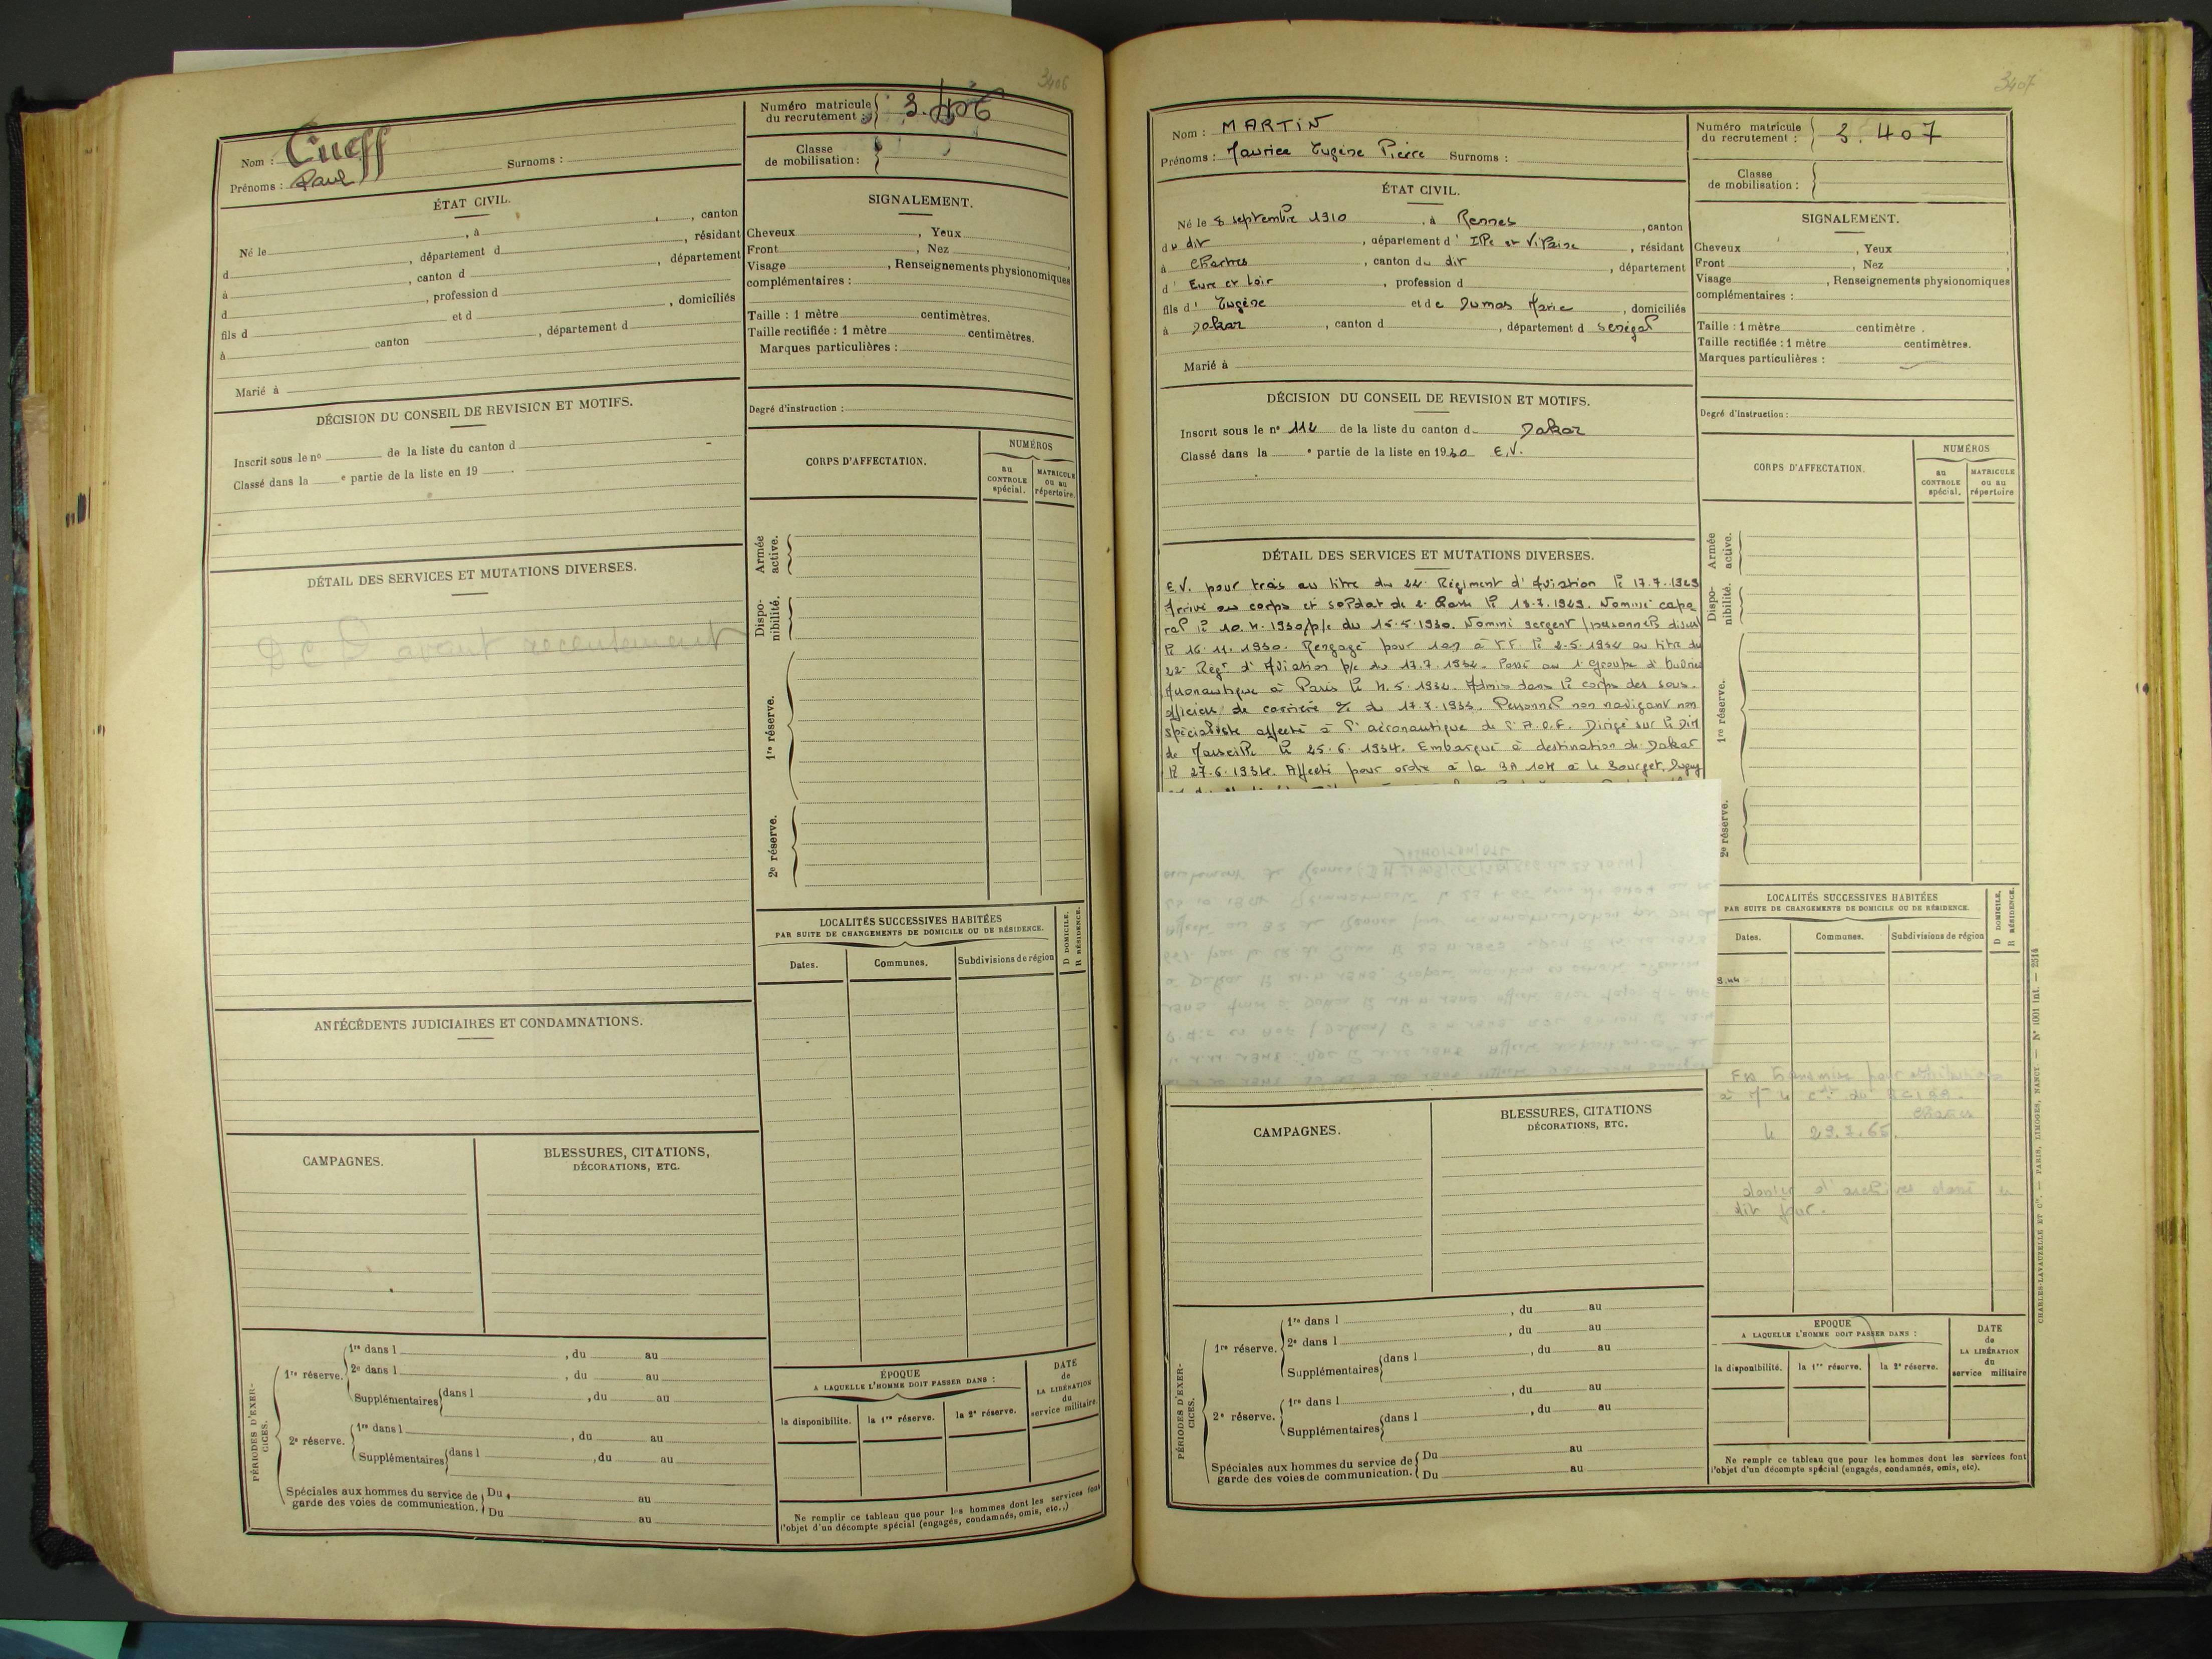 3406
Nom : Cueff
Prénoms : Paul Surnoms :
Numéro matricule du recrutement : 3.406
Classe de mobilisation :
ÉTAT CIVIL.
Né le , à , canton
d , département d , résidant
à , canton d , département
d , profession d
fils d et d , domiciliés
à canton , département d
Marié à
SIGNALEMENT.
Cheveux , Yeux
Front , Nez
Visage , Renseignements physionomiques
complémentaires :
Taille : 1 mètre centimètres.
Taille rectifiée : 1 mètre centimètres.
Marques particulières :
Degré d'instruction :
DÉCISION DU CONSEIL DE REVISION ET MOTIFS.
Inscrit sous le no de la liste du canton d
Classé dans la e partie de la liste en 19 .
CORPS D'AFFECTATION.
NUMÉROS
au CONTROLE spécial.
MATRICULE ou au répertoire.
Armée active.
Dispo-nibilité.
1re réserve.
2e réserve.
DÉTAIL DES SERVICES ET MUTATIONS DIVERSES.
DCD avant recensement
LOCALITÉS SUCCESSIVES HABITÉES
PAR SUITE DE CHANGEMENTS DE DOMICILE OU DE RÉSIDENCE.
D DOMICILE.
R RÉSIDENCE.
Dates. Communes. Subdivisions de région
ANTÉCÉDENTS JUDICIAIRES ET CONDAMNATIONS.
CAMPAGNES.
BLESSURES, CITATIONS,
DÉCORATIONS, ETC.
PÉRIODES D'EXER-CICES.
1re réserve.
1re dans l , du au
2e dans l , du au
Supplémentaires dans l , du au
2e réserve.
1re dans l , du au
Supplémentaires dans l , du au
Spéciales aux hommes du service de Du au
garde des voies de communication. Du au
ÉPOQUE
A LAQUELLE L'HOMME DOIT PASSER DANS :
la disponibilite. la 1re réserve. la 2e réserve.
DATE
de
LA LIBÉRATION
du
service militaire
Ne remplir ce tableau que pour les hommes dont les services font
l'objet d'un décompte spécial (engagés, condamnés, omis, etc.,)
3407
Nom : MARTIN
Prénoms : Maurice Eugène Pierre Surnoms :
Numéro matricule du recrutement : 3.407
Classe de mobilisation :
ÉTAT CIVIL.
Né le 8 septembre 1910 , à Rennes , canton
du dit , département d' Ille et Vilaine , résidant
à Chartres , canton du dit , département
d' Eure et Loir , profession d
fils d' Eugène et de Dumas Marie , domiciliés
à Dakar , canton d , département d Senégal
Marié à
SIGNALEMENT.
Cheveux , Yeux
Front , Nez
Visage , Renseignements physionomiques
complémentaires :
Taille : 1 mètre centimètre .
Taille rectifiée : 1 mètre centimètres.
Marques particulières :
Degré d'instruction :
DÉCISION DU CONSEIL DE REVISION ET MOTIFS.
Inscrit sous le no 112 de la liste du canton d Dakar
Classé dans la e partie de la liste en 1930 E.V.
CORPS D'AFFECTATION.
NUMÉROS
au CONTROLE spécial.
MATRICULE ou au répertoire
Armée active.
Dispo-nibilité.
1re réserve.
2e réserve.
DÉTAIL DES SERVICES ET MUTATIONS DIVERSES.
E.V. pour trois au titre du 22e Régiment d'Aviation le 17.7.1929
Arrivé au corps et soldat de 2e classe le 18.7.1929. Nommé capo
ral le 10.4.1930 p/c du 15.5.1930. Nommé sergent (personnels
le 16.11.1930. Rengagé pour 1an à le 2.5.1932 au titre du
22e Régt d'Aviation p/c du 17.7.1932. Passé au 1 Groupe d'
Aéronautique à Paris le 4.5.1932. Admis dans le corps des sous.
officiers de carrière du 17.7.1933. Personnel non navigant non
spécialiste affecté à l'aéronautique de l'A.O.F. Dirigé sur le
de Marseille le 25.6.1934. Embarqué à destination de Dakar
le 27.6.1934. Affecté pour ordre à la BA 104 à le Bourget Dugny
LOCALITÉS SUCCESSIVES HABITÉES
PAR SUITE DE CHANGEMENTS DE DOMICILE OU DE RÉSIDENCE.
D DOMICILE.
R RÉSIDENCE.
Dates. Communes. Subdivisions de région
à
Chartres
le 29.3.65.
dit jour.
CAMPAGNES.
BLESSURES, CITATIONS
DÉCORATIONS, ETC.
PÉRIODES D'EXER-CICES.
1re réserve.
1re dans l , du au
2e dans l , du au
Supplémentaires dans l , du au
2e réserve.
1re dans l , du au
Supplémentaires dans l , du au
Spéciales aux hommes du service de Du au
garde des voies de communication. Du au
EPOQUE
A LAQUELLE L'HOMME DOIT PASSER DANS :
la disponibilité. la 1re réserve. la 2e réserve.
DATE
de
LA LIBÉRATION
du
service militaire
Ne remplr ce tableau que pour les hommes dont les services font
l'objet d'un décompte spécial (engagés, condamnés, omis, etc).
CHARLES-LAVAUZELLE ET Cie. — PARIS, LIMOGES, NANCY. — N° 1001 Int. — 2514